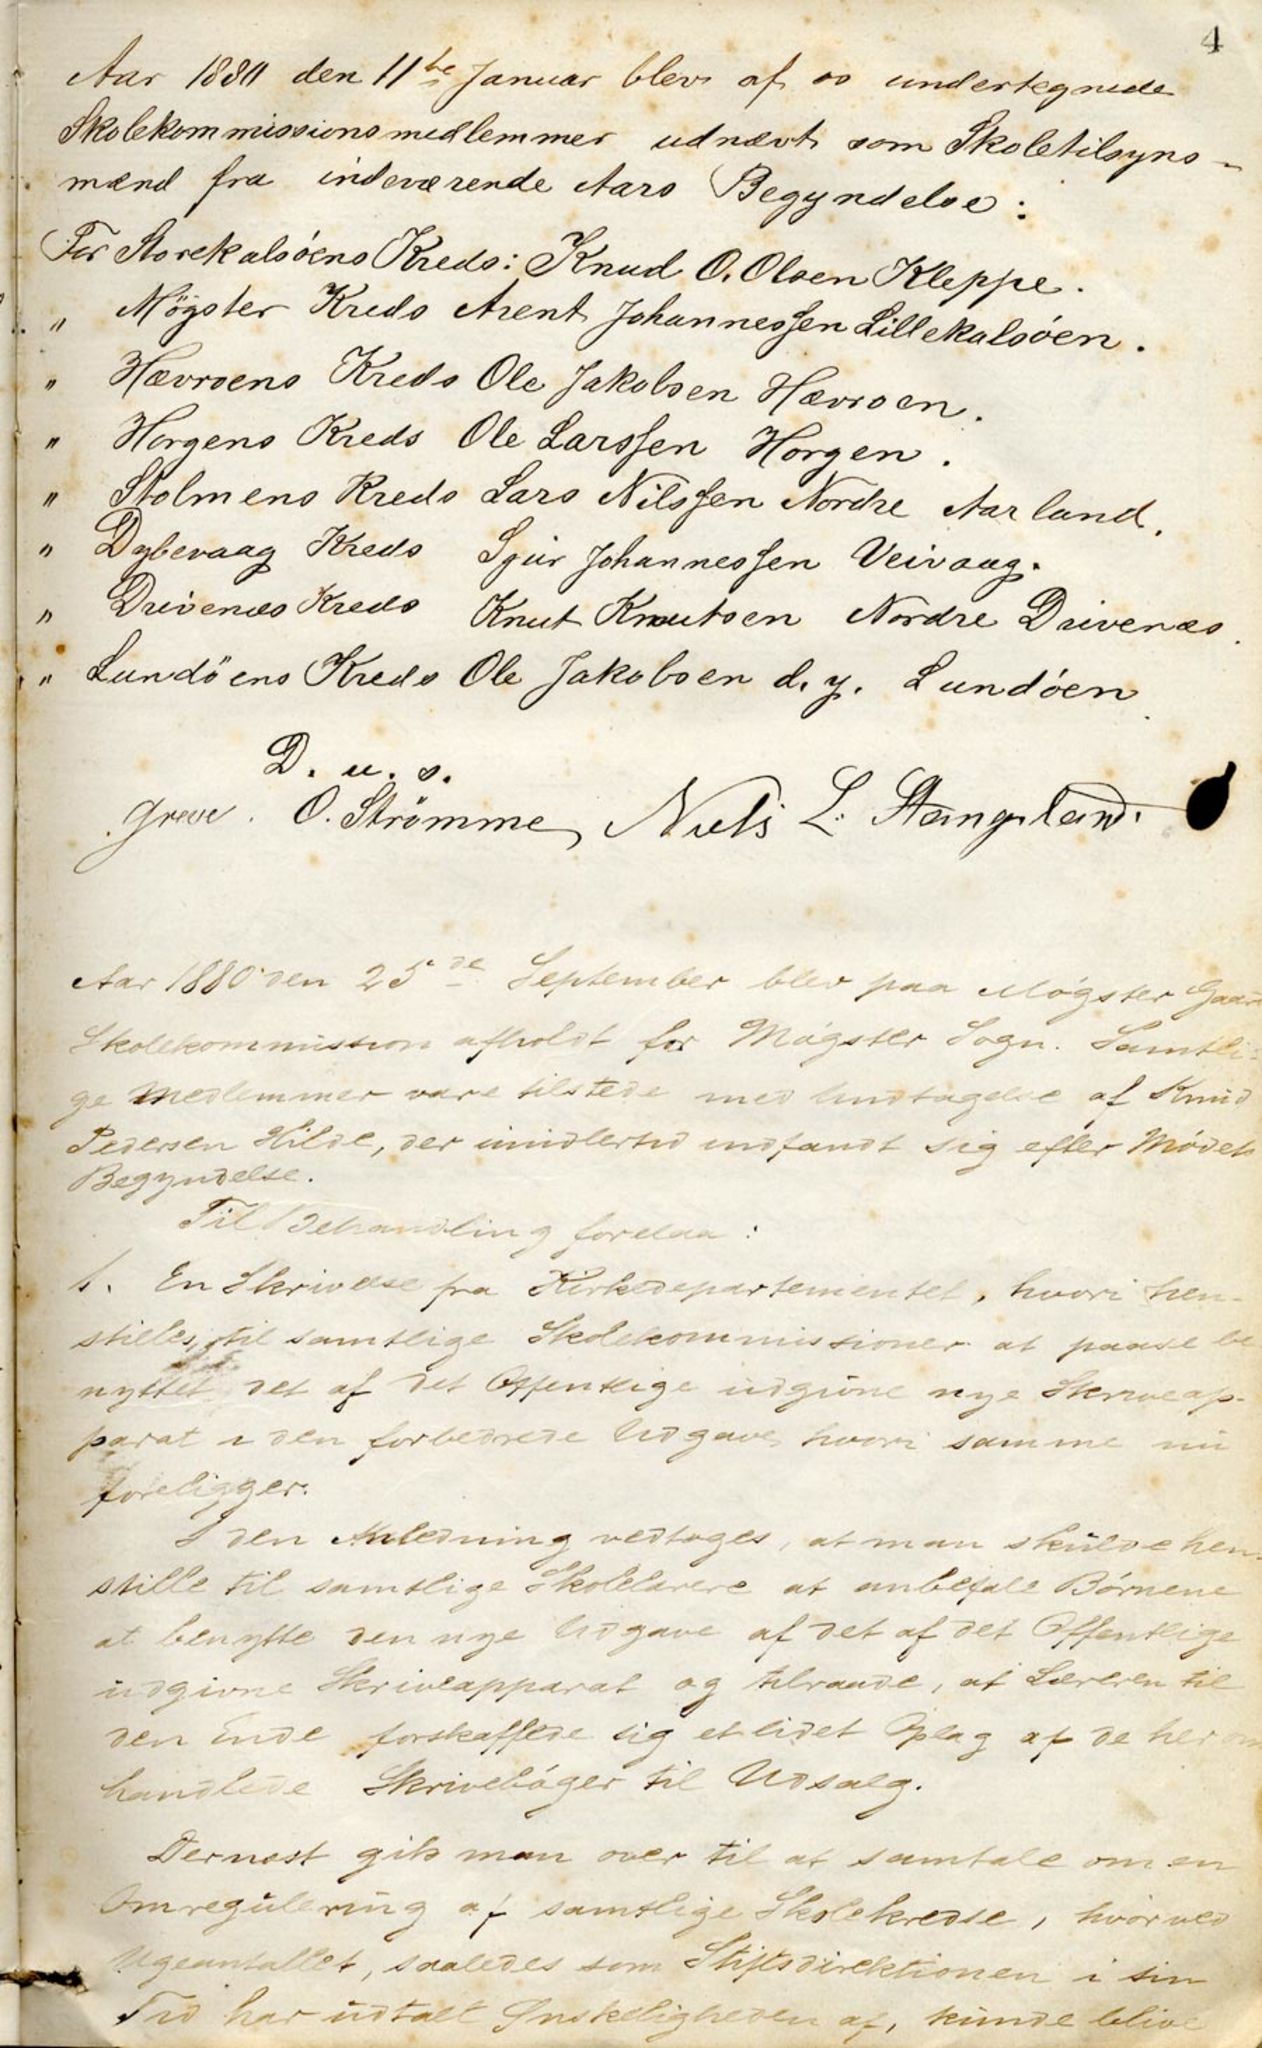 4
Aar 1880 den 11te Januar blev af os undertegnede
Skolekommissionsmedlemmer udnævt som Skoletilsyns-
mænd fra indeværende Aars Begyndelse:
For Storekalsöens Kreds: Knud O. Olsen Kleppe.
" Mögster Kreds Arent Johannessen Lillekalsöen.
" Hævroens Kreds Ole Jakobsen Hævroen.
" Horgens Kreds Ole Larssen Horgen.
" Stolmens Kreds Lars Nilssen Nordre Aarland.
" Dybevaag Kreds Sjur Johannessen Veivaag.
" Drivenæs Kreds Knut Knutsen Nordre Drivenæs.
" Lundöens Kreds Ole Jakobsen d. y. Lundöen
D. u. s.
Greve. O. Strömme, Niels L. Stangeland.
Aar 1880 den 25de September blev paa Mögster Gaard
Skolekommission afholdt for Mögster Sogn. Samtli-
ge Medlemmer vare tilstede med Undtagelse af Knud
Pedersen Hilde, der imidlertid indfandt sig efter Mödets
Begyndelse.
Til Behandling forelaa:
1. En Skrivelse fra Kirkedepartementet, hvori hen-
stilles til samtlige Skolekommissioner at paase be
nyttet det af det Offentlige udgivne nye Skriveap-
parat i den forbedrede Udgave hvori samme nu
foreligger.
I den Anledning vedtoges, at man skulde hen-
stille til samtlige Skolelærere at anbefale Börnene
at benytte den nye Udgave af det af det Offentlige
udgivne Skriveapparat og tilraade, at Læreren til
den Ende forskaffede sig et lidet Oplag af de herom
handlede Skriveböger til Udsalg.
Dernæst gik man over til at samtale om en
Omregulering af samtlige Skolekredse, hvorved
Ugeantallet, saaledes som Stiftsdirektionen i sin
Tid har udtalt Ønskeligheden af, kunde blive